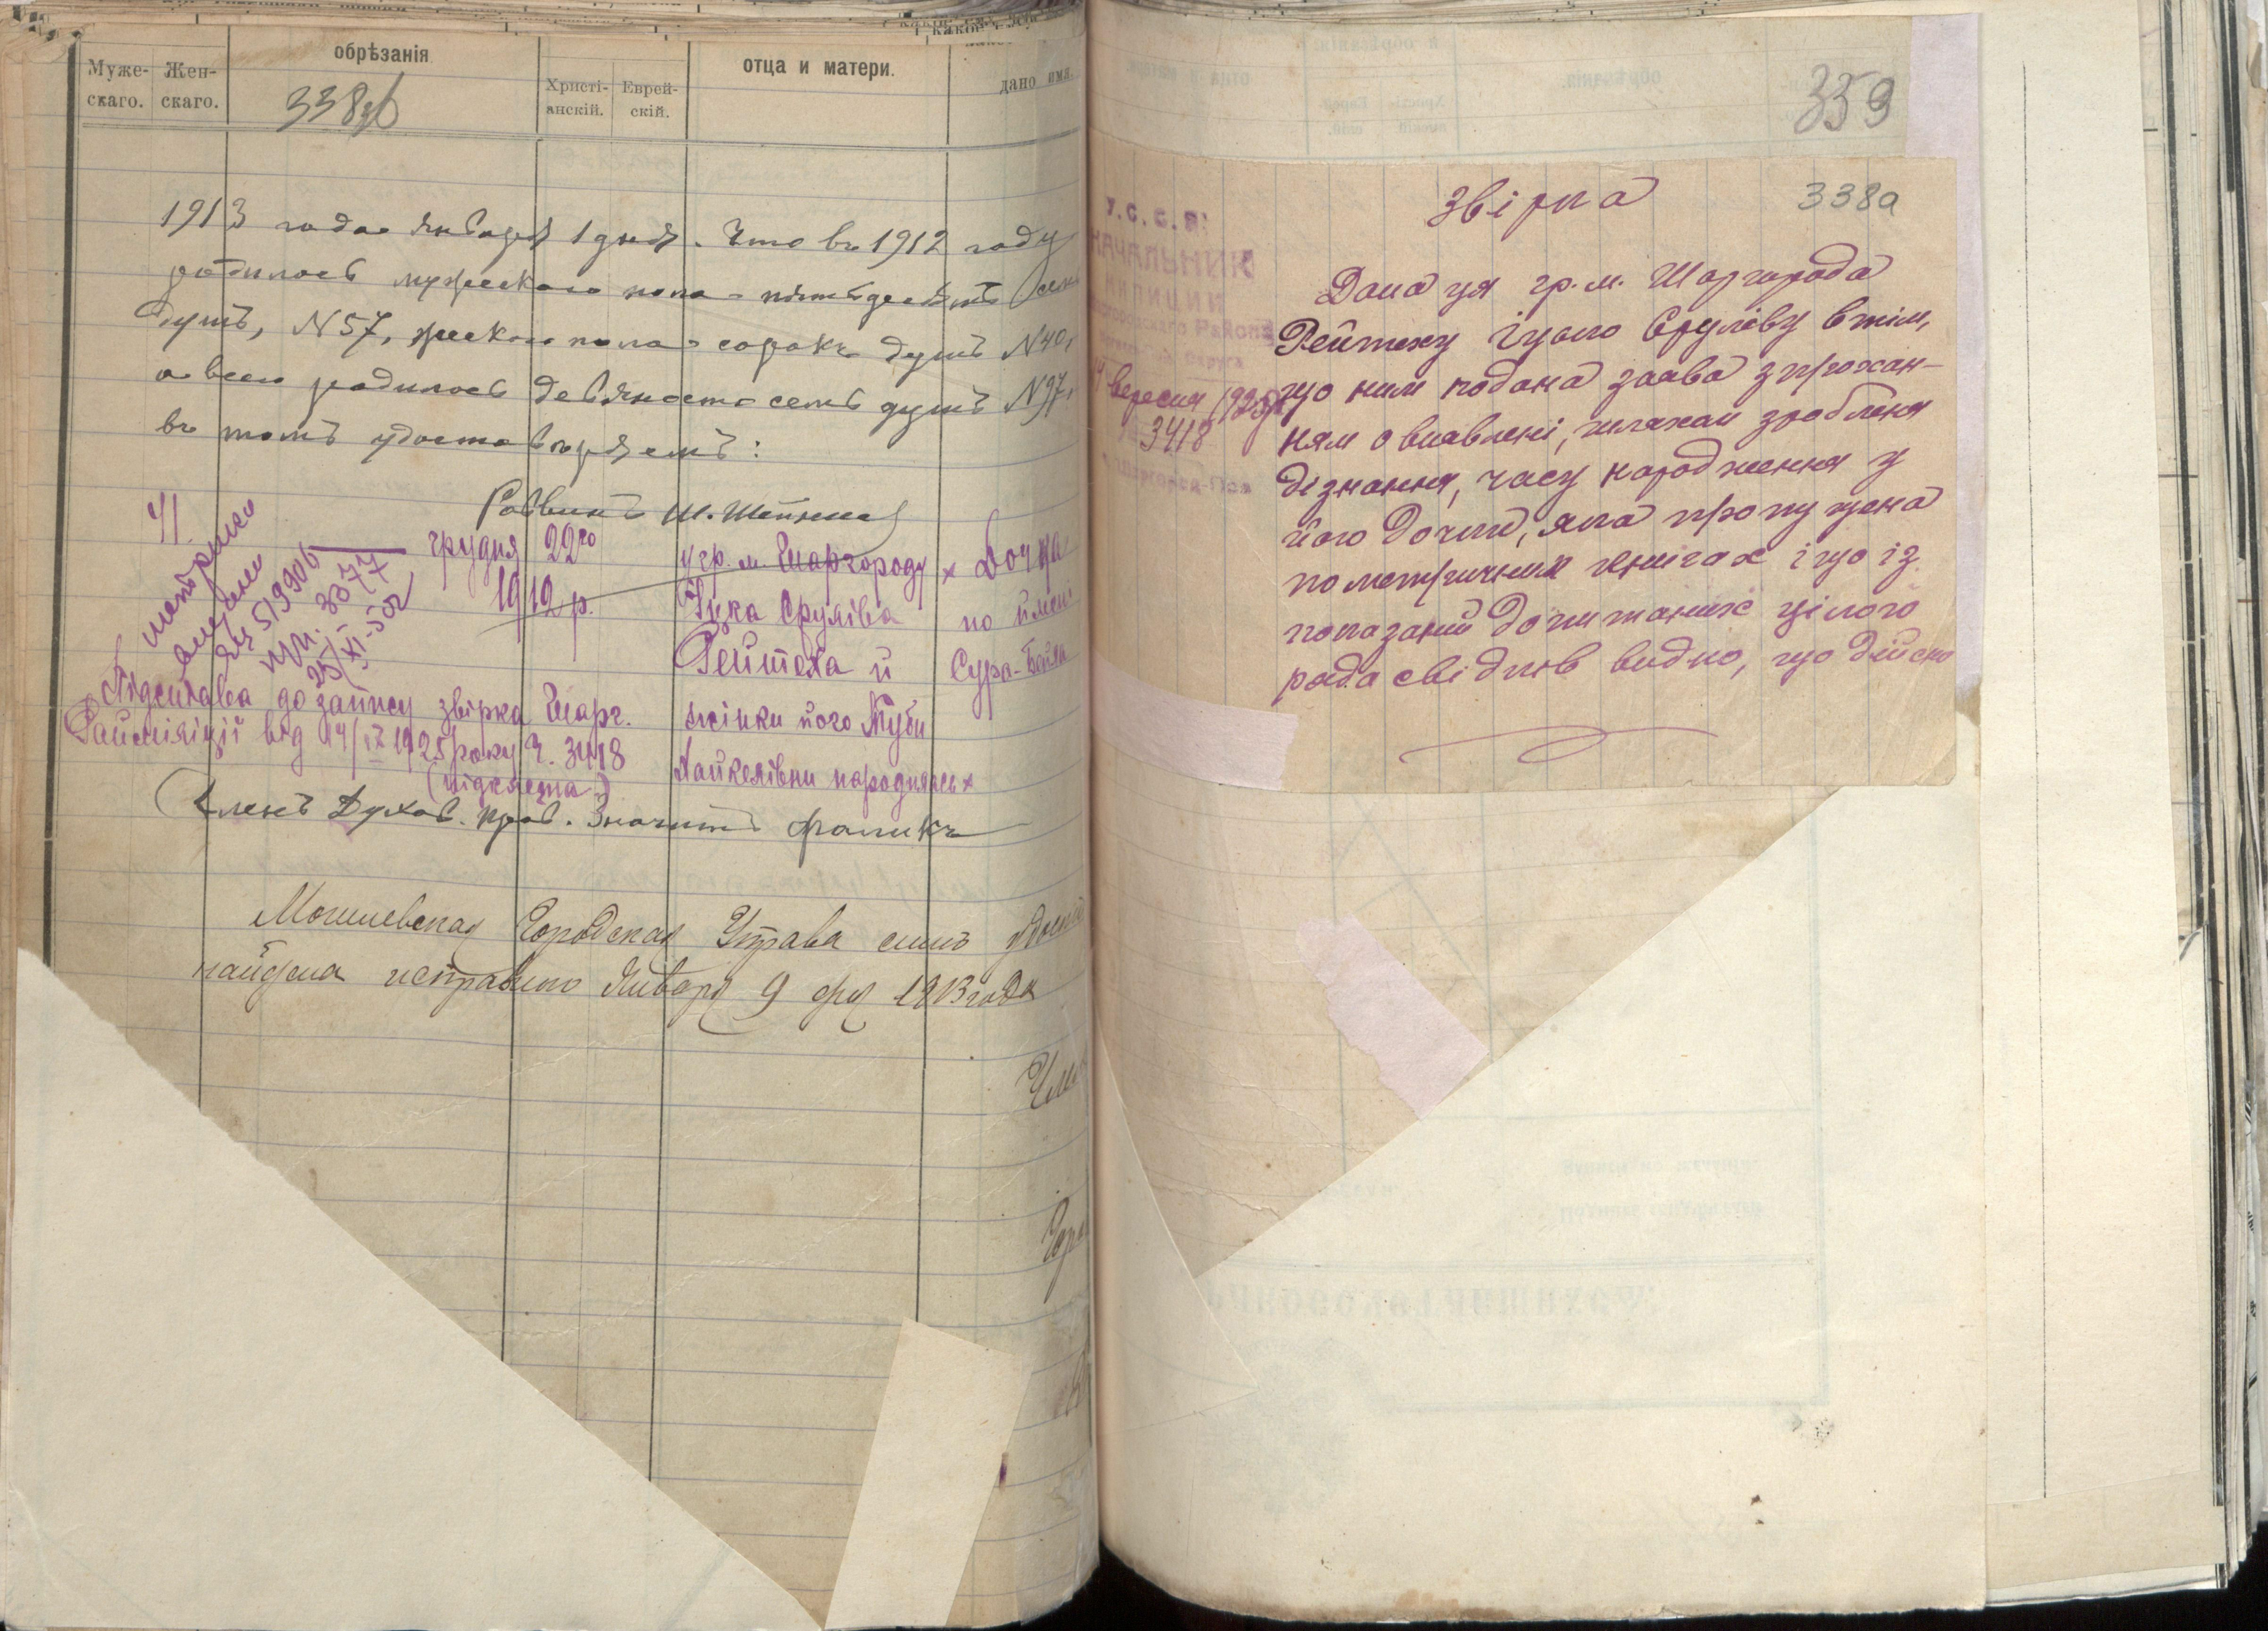 Муже-
скаго.
Жен-
скаго.
обрѣзанія
338зв
Христі-
анскій.
Еврей-
скій.
отца и матери.
дано имя.
1913 года Января 1 дня. Что въ 1912 году
родилось мужескаго пола - пятьдесятъ семь
душъ, N 57, женскаго пола - сорокъ душъ N 40,
а всего родилось девяносто семь душъ N 97,
въ томъ удостовѣряемъ:
Раввинъ Ш.
41.
метрика
видана
519906
3377
25/XI-
грудня 22го
1912 р.
у гр. м. Шаргороду
Іцка Сруліва
Рейтеха й
жінки його Туби
Хайкелівни народилась ×
× Дочка
по імені
Сура-Бейла
Підстава до запису звірка Шарг.
Райміліції від 14/IX 1925 року Ч. 3418
(підклеєна)
Членъ Духов. Прав. Значитъ Фаликъ
Могилевская Городская Управа симъ
найдена исправною Января 9 дня 1913 года
359
338а
Звірка
У.С.С.Р.
НАЧАЛЬНИК
МИЛИЦИИ
Района
Округа
14 вересня 1925
3418
Дана ця гр. м. Шаргорода
Рейтеху Іцько Сруліву втім,
що ним подана заява з прохан-
ням о виявлені, шляхом зроблення
дізнання, часу народження у
його дочки, яка пропущена
по метричних книгах і що із
показаний допитаних цілого
ряда свідків видно, що дійсно